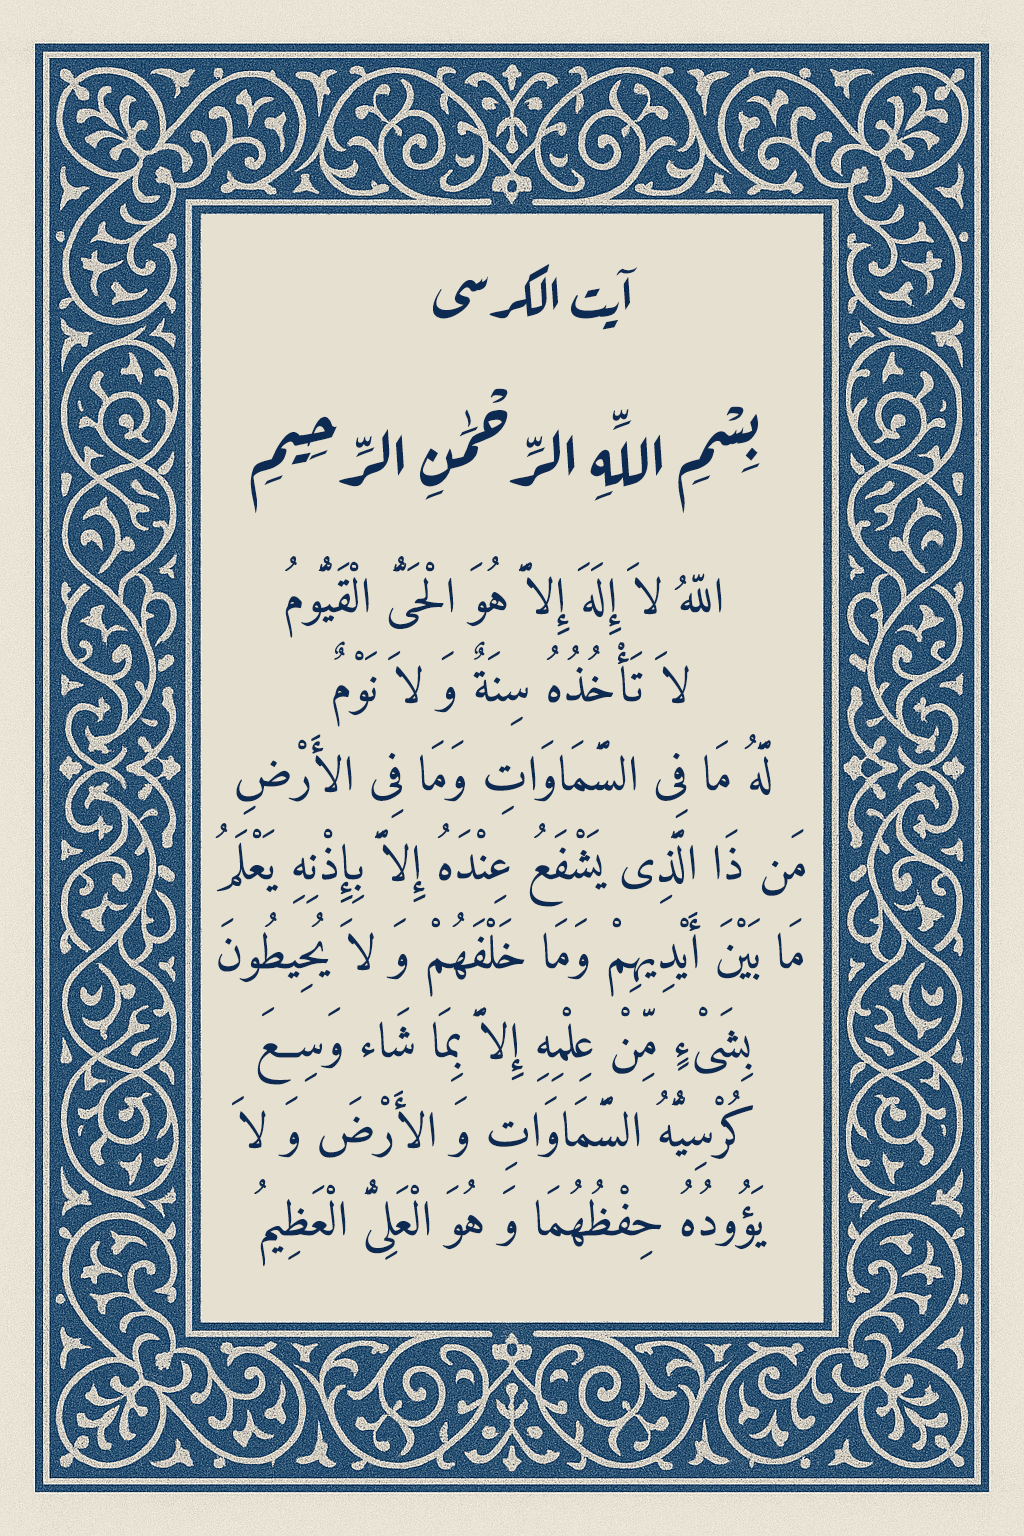 آیت الکرسی
بِسْمِ اللَّهِ الرَّحْمَٰنِ الرَّحِيمِ
اللّهُ لاَ إِلَهَ إِلاَّ هُوَ الْحَیُّ الْقَیُّومُ
لاَ تَأْخُذُهُ سِنَةٌ وَ لاَ نَوْمٌ
لَّهُ مَا فِی السَّمَاوَاتِ وَمَا فِی الأَرْضِ
مَن ذَا الَّذِی یَشْفَعُ عِنْدَهُ إِلاَّ بِإِذْنِهِ یَعْلَمُ
مَا بَیْنَ أَیْدِیهِمْ وَمَا خَلْفَهُمْ وَ لاَ یُحِیطُونَ
بِشَیْءٍ مِّنْ عِلْمِهِ إِلاَّ بِمَا شَاء وَسِعَ
كُرْسِیُّهُ السَّمَاوَاتِ وَ الأَرْضَ وَ لاَ
یَؤُودُهُ حِفْظُهُمَا وَ هُوَ الْعَلِیُّ الْعَظِیمُ